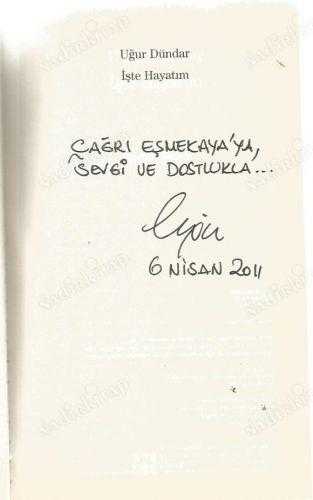 Uğur Dündar
İşte Hayatım
ÇAĞRI EŞMEKAYA'YA,
SEVGİ VE DOSTLUKLA...
6 NİSAN 2011